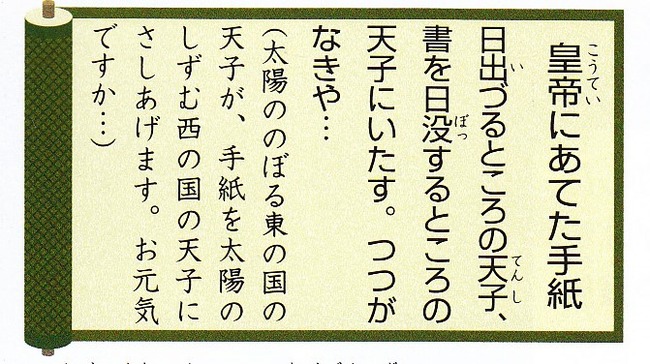 皇帝にあてた手紙
日出づるところの天子、
書を日没するところの
天子にいたす。つつが
なきや…
(太陽ののぼる東の国の
天子が、手紙を太陽の
しずむ西の国の天子に
さしあげます。お元気
ですか…)